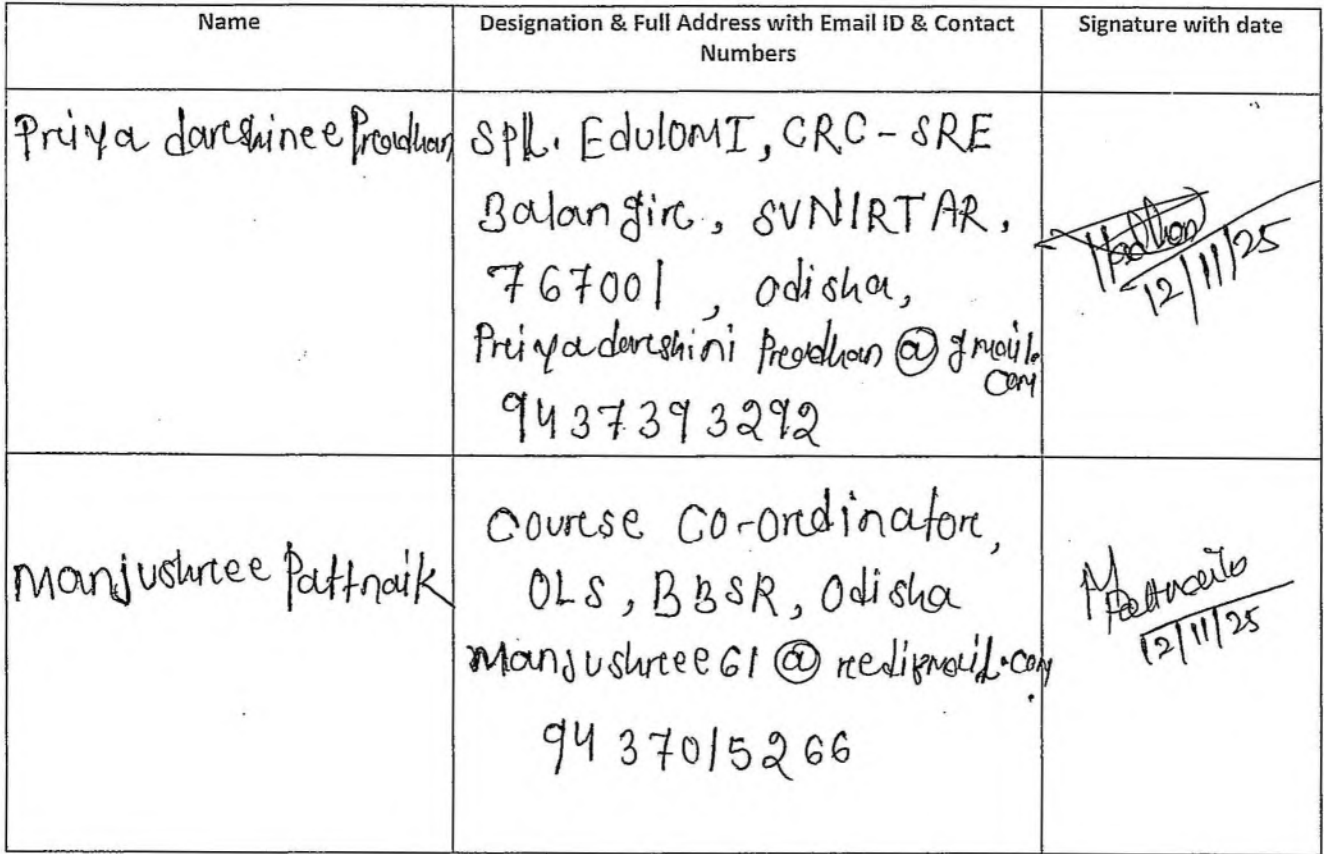 Name
Designation & Full Address with Email ID & Contact Numbers
Signature with date
Priyadarshinee Pradhan
Spl. Edu(OMI, CRC-SRE
Balangir, SVNIRTAR,
767001, Odisha,
Priyadarshini Pradhan@gmail.com
9437393292
12/11/25
Manjushree Pattnaik
Course Co-ordinator,
OLS, BBSR, Odisha
Manjushree61@rediffmail.com
9437015266
MPattnaik
12/11/25